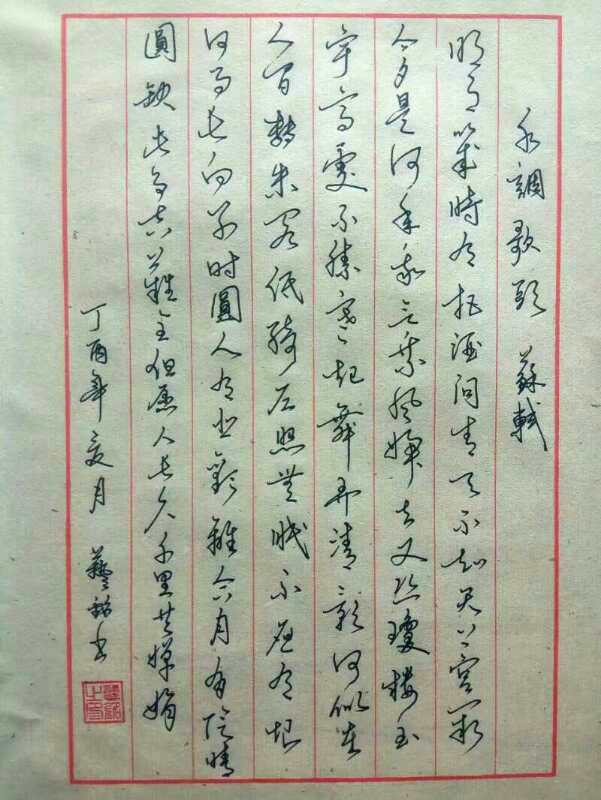 水調歌頭 蘇軾
明月幾時有把酒問青天不知天上宮闕
今夕是何年我欲乘風歸去又恐瓊樓玉
宇高處不勝寒起舞弄清影何似在
人間轉朱閣低綺戶照無眠不應有恨
何事長向別时圓人有悲歡離合月有陰晴
圓缺此事古難全但愿人長久千里共嬋娟
丁酉年夏月 藝銘书